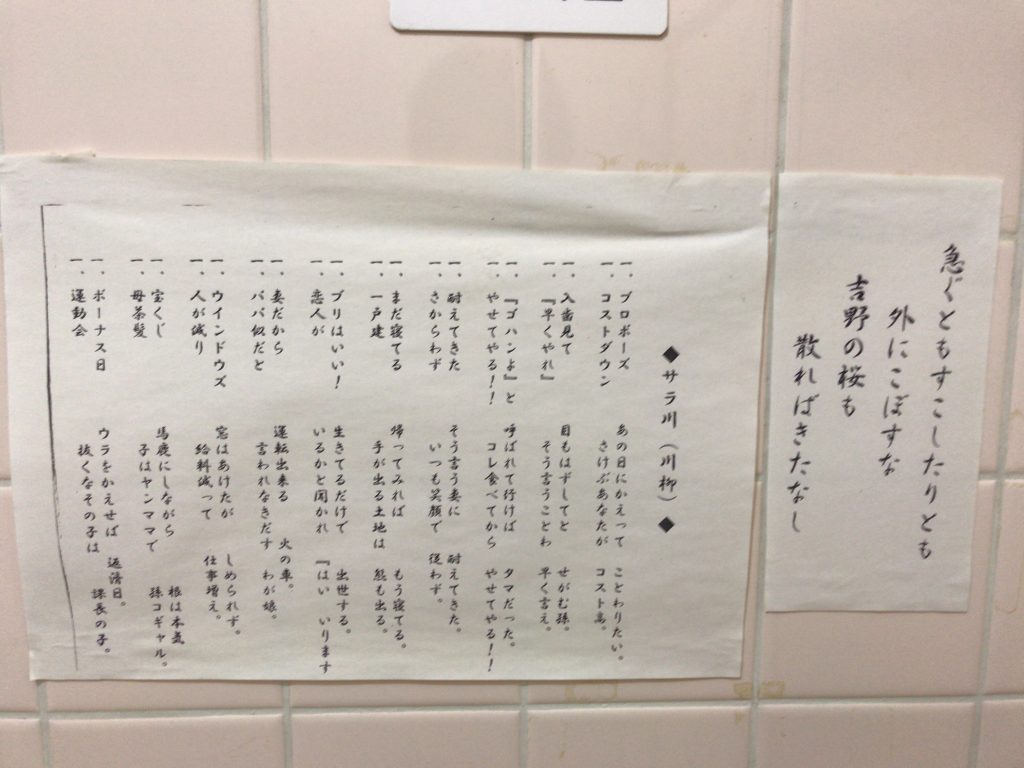 急ぐともすこしたりとも
外にこぼすな
吉野の桜も
散ればきたなし
◆サラ川（川柳）◆
一、プロポーズ　あの日にかえって　ことわりたい。
一、コストダウン　さけぶあなたが　コスト高。
一、入歯見て　目もはずしてと　せがむ孫。
一、『早くやれ』　そう言うことわ　早く言え。
一、『ゴハンよ』と　呼ばれて行けば　タマだった。
一、やせてやる！！　コレ食べてから　やせてやる！！
一、耐えてきた　そう言う妻に　耐えてきた。
一、さからわず　いつも笑顔で　従わず。
一、まだ寝てる　帰ってみれば　もう寝てる。
一、一戸建　手が出る土地は　熊も出る。
一、ブリはいい！　生きてるだけで　出世する。
一、恋人が　いるかと聞かれ　『はい　いります
一、妻だから　運転出来る　火の車。
一、パパ似だと　言われなきだす　わが娘。
一、ウインドウズ　窓はあけたが　しめられず。
一、人が減り　給料減って　仕事増え。
一、宝くじ　馬鹿にしながら　根は本気
一、母茶髪　子はヤンママで　孫コギャル。
一、ボーナス日　ウラをかえせば　返済日。
一、運動会　抜くなその子は　課長の子。